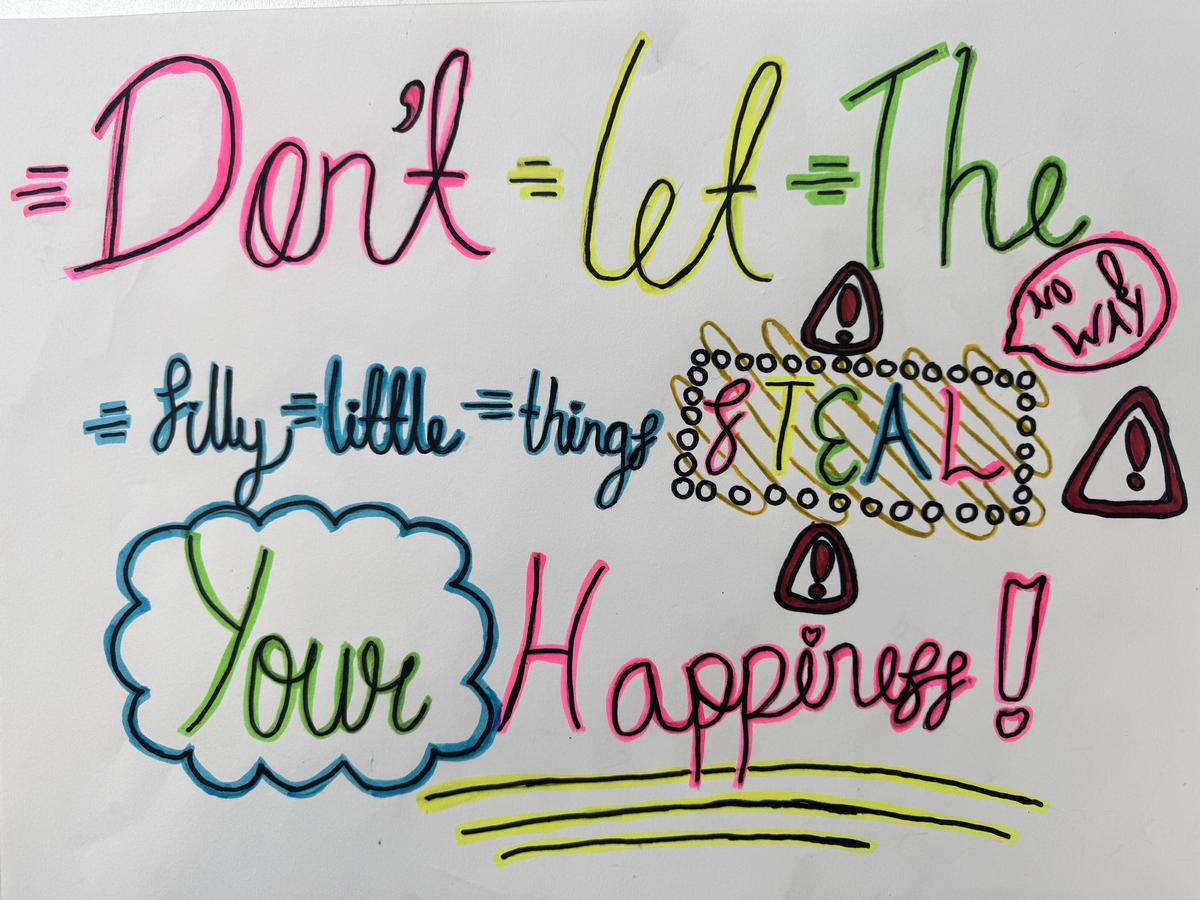 Don't let The
NO WAY!
silly little things STEAL
Your Happiness!